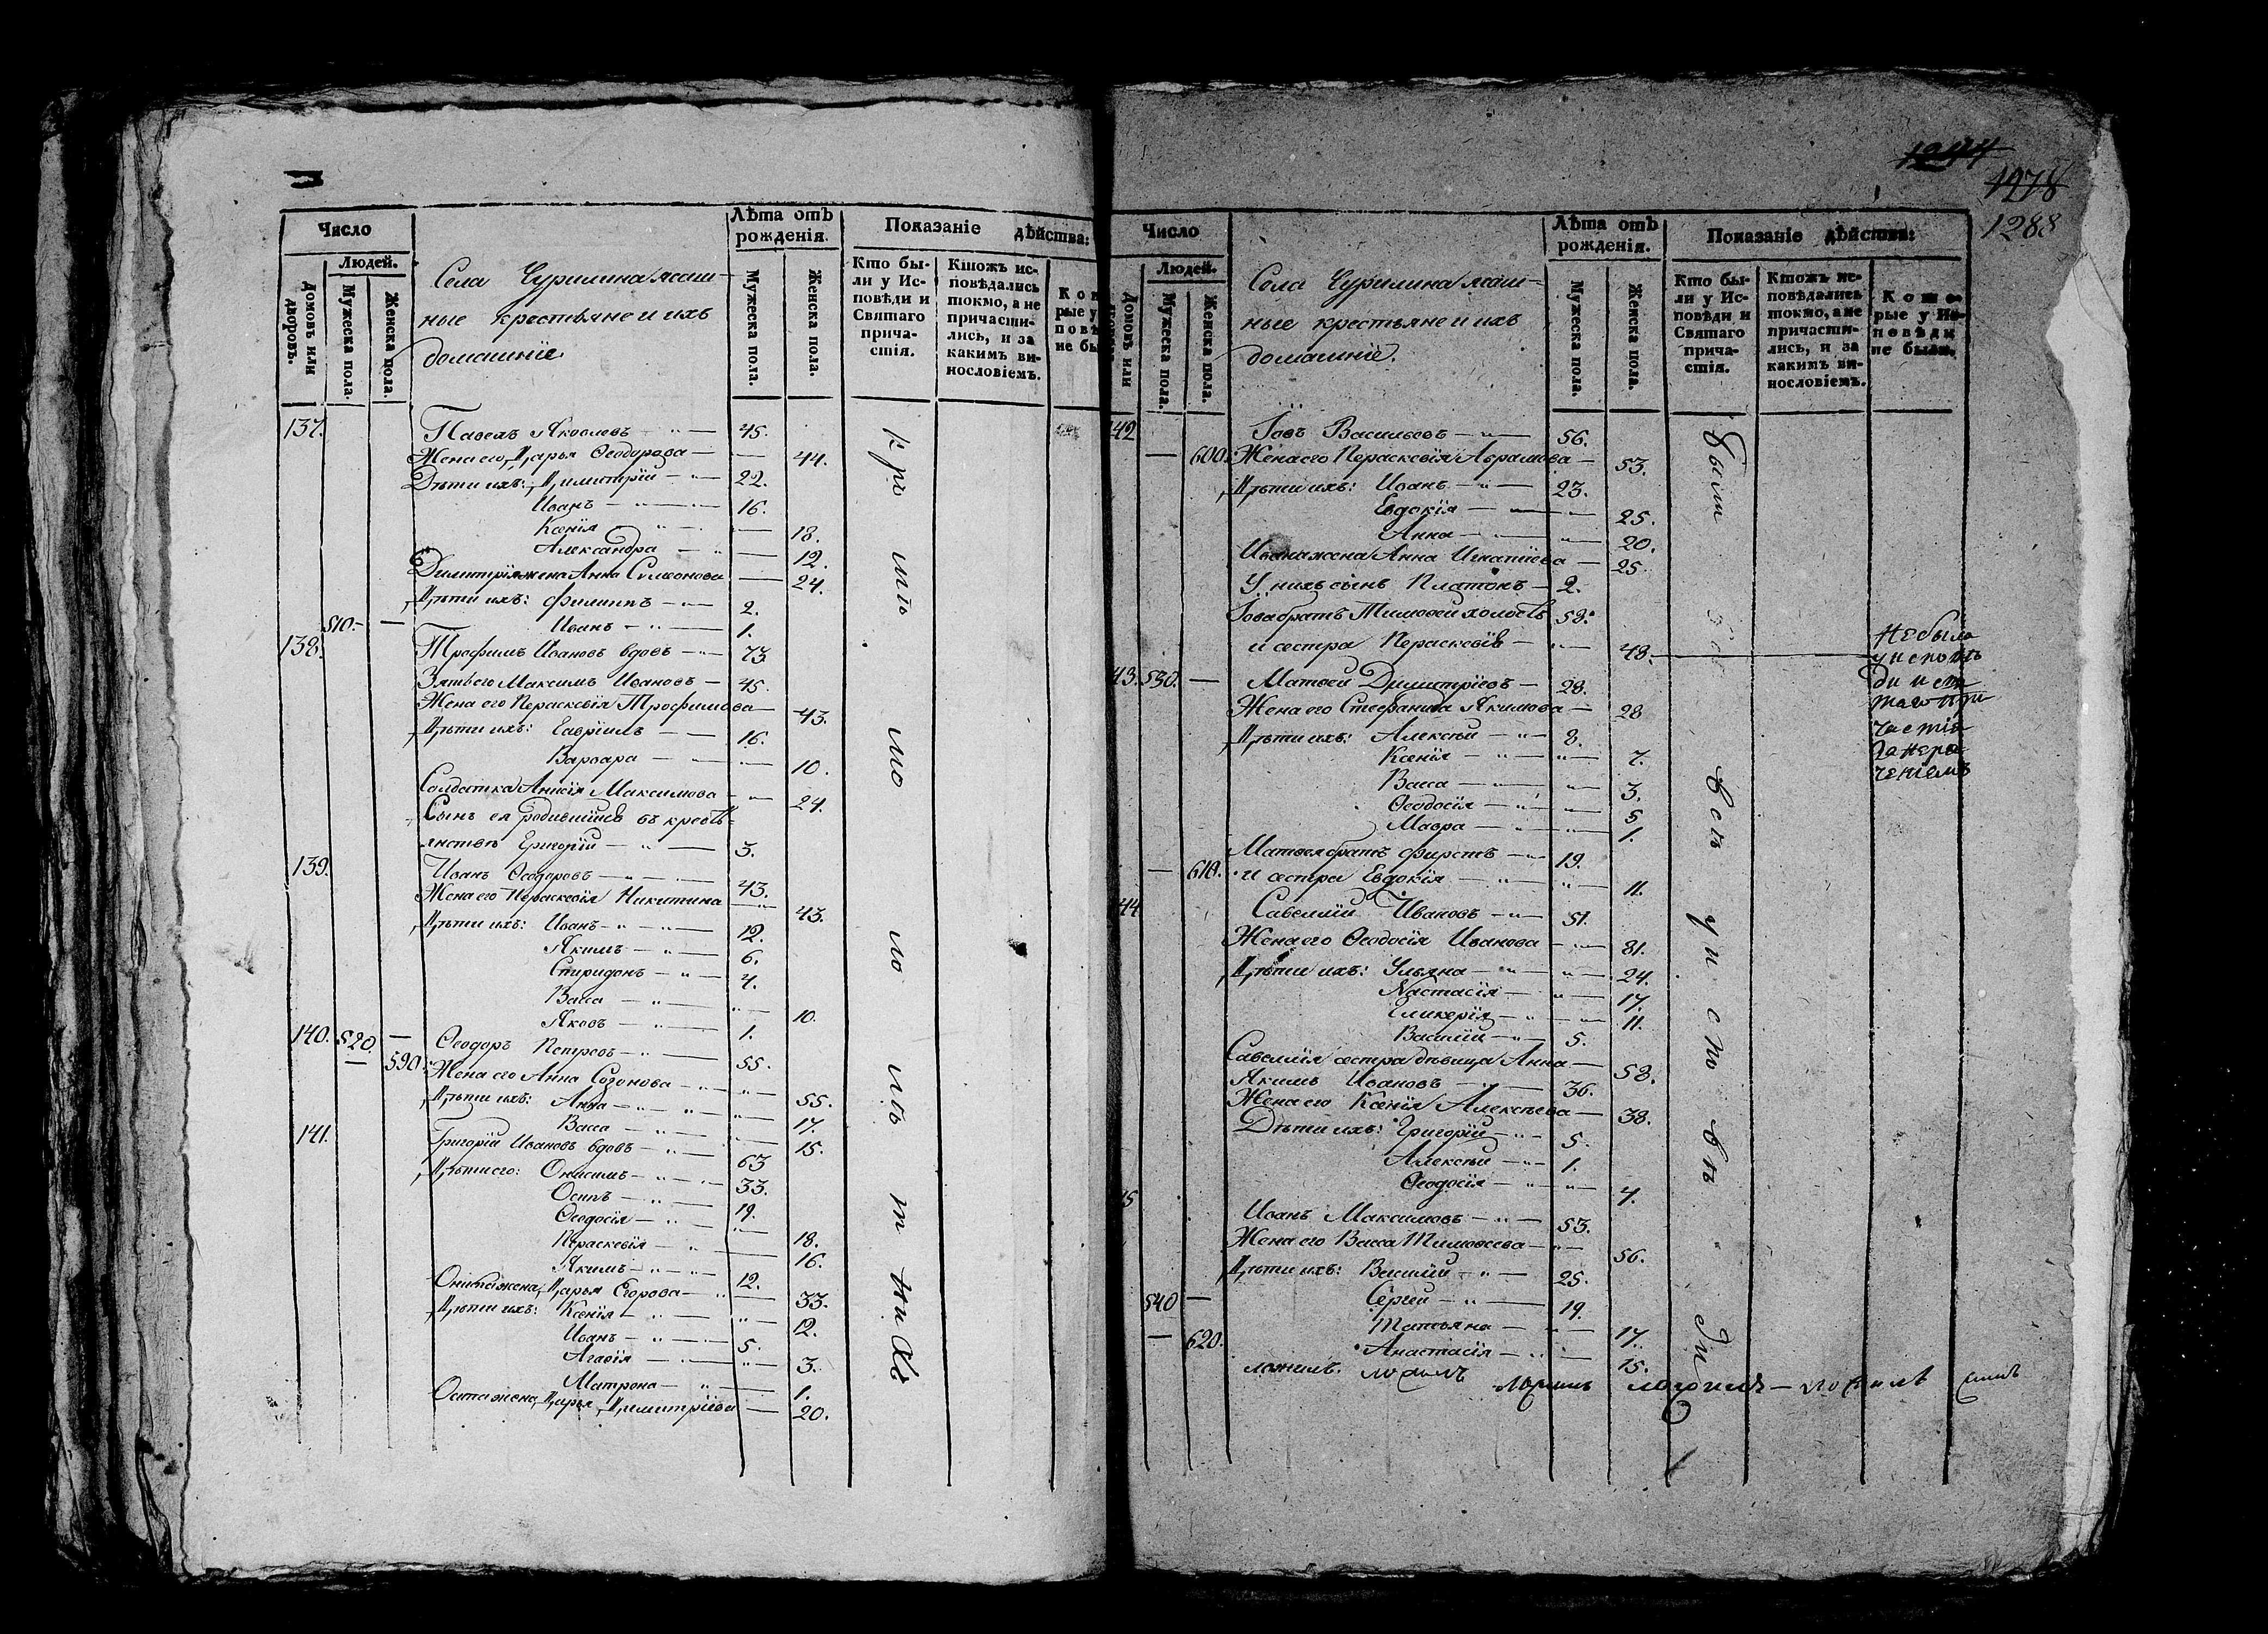 Число
Людей.
Домовъ или дворовъ.
Мужеска пола.
Женска пола.
Села Чурилина ясаш-
ные крестьяне и ихъ
домашніе
Лѣта отъ
рожденія.
Мужеска пола.
Женска пола.
Показаніе дѣйства:
Кто бы-
ли у Ис-
повѣди и
Святаго
прича-
стія.
Ктожъ ис-
повѣдались
токмо, а не
причасти-
лись, и за
какимъ ви-
нословіемъ.
137. Павелъ Яковлевъ 45.
Жена его Дарья Ѳеодорова 44.
Дѣти ихъ: Димитрій 22.
Иванъ 16.
Ксенія 18.
Александра 12.
Димитрія жена Анна Симеонова 24.
Дѣти ихъ: Филиппъ 2.
510. Иванъ 1.
138. Трофимъ Ивановъ вдовъ 73
Зять его Максимъ Ивановъ 45.
Жена его Пераскевія Трофимова 43.
Дѣти ихъ: Гавріилъ 16.
Варвара 10.
Солдатка Анисія Максимова 24.
Сынъ ея родившійся въ кресть-
янствѣ Григорій 3.
139. Иванъ Ѳеодоровъ 43.
Жена его Пераскевія Никитина 43.
Дѣти ихъ: Иванъ 12.
Якимъ 6.
Спиридонъ 4.
Васса 10.
Яковъ 1.
140. 520. Ѳеодоръ Петровъ 55.
590. Жена его Анна Созонова 55.
Дѣти ихъ: Анна 17.
Васса 15.
141. Григорій Ивановъ вдовъ 63
Дѣти его: Онисимъ 33.
Осипъ 19.
Ѳеодосія 18.
Пераскевія 16.
Якимъ 12.
жена Дарья Егорова 33.
Дѣти ихъ: Ксенія 12.
Иванъ 5.
Агафія 3.
Матрона 1.
жена Дарья Димитріева 20.
1944
1978
1288
Число
Людей.
Домовъ или
Мужеска пола.
Женска пола.
Села Чурилина ясаш-
ные крестьяне и ихъ
домашніе.
Лѣта отъ
рожденія.
Мужеска пола.
Женска пола.
Показаніе дѣйства:
Кто бы-
ли у Ис-
повѣди и
Святаго
прича-
стія.
Ктожъ ис-
повѣдались
токмо, а не
причасти-
лись, и за
какимъ ви-
нословіемъ.
Кото-
рые у Ис-
повѣди
не были.
142 Іовъ Васильевъ 56.
600. Жена его Пераскевія Абрамова 53.
Дѣти ихъ: Иванъ 23.
Евдокія 25.
Анна 20.
Ивана жена Анна Игнатіева 25.
У нихъ сынъ Платонъ 2.
Іова братъ Тимоѳей холостъ 58.
и сестра Пераскевія 48.
43. 530. Матвѣй Димитріевъ 28.
Жена его Стефанида Якимова 28
Дѣти ихъ: Алексѣй 8.
Ксенія 7.
Васса 3.
Ѳеодосія 5
Мавра 1.
Матвея братъ Фирстъ 19.
610. и сестра Евдокія 11.
44 Савелій Ивановъ 51.
Жена его Ѳеодосія Иванова 81.
Дѣти ихъ: Ульяна 24.
Настасія 17.
Гликерія 11.
Василій 5.
Савелія сестра дѣвица Анна 58.
Якимъ Ивановъ 36.
Жена его Ксенія Алексѣева 38.
Дѣти ихъ: Григорій 5.
Алексѣй 1.
Ѳеодосія 4.
45 Иванъ Максимовъ 53.
Жена его Васса Тимоѳеева 56.
Дѣти ихъ: Василій 25.
540 Сергій 19.
620. Татьяна 17.
Анастасія 15.
были всѣ у испо вѣ